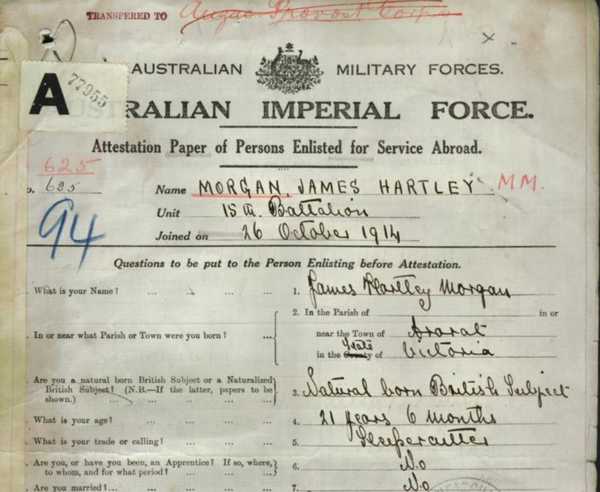 TRANSFERED TO Anzac Provost Corps
A 77955
AUSTRALIAN MILITARY FORCES.
AUSTRALIAN IMPERIAL FORCE.
Attestation Paper of Persons Enlisted for Service Abroad.
625
No. 625 Name MORGAN, JAMES HARTLEY M.M.
Unit 15th Battalion
94
Joined on 26 October 1914
Questions to be put to the Person Enlisting before Attestation.
What is your Name? ... ... ... 1. James Hartley Morgan
2. In the Parish of in or
In or near what Parish or Town were you born? ... near the Town of Ararat
in the County State of Victoria
Are you a natural born British Subject or a Naturalized
British Subject? (N.B.—If the latter, papers to be 3. Natural born British Subject
shown.) ... ... ... ...
What is your age? ... ... ... 4. 21 years 6 months
What is your trade or calling? ... ... 5. Sleepercutter
Are you, or have you been, an Apprentice? If so, where, 6. No
to whom, and for what period? ... ...
Are you married? ... ... ... 7. No